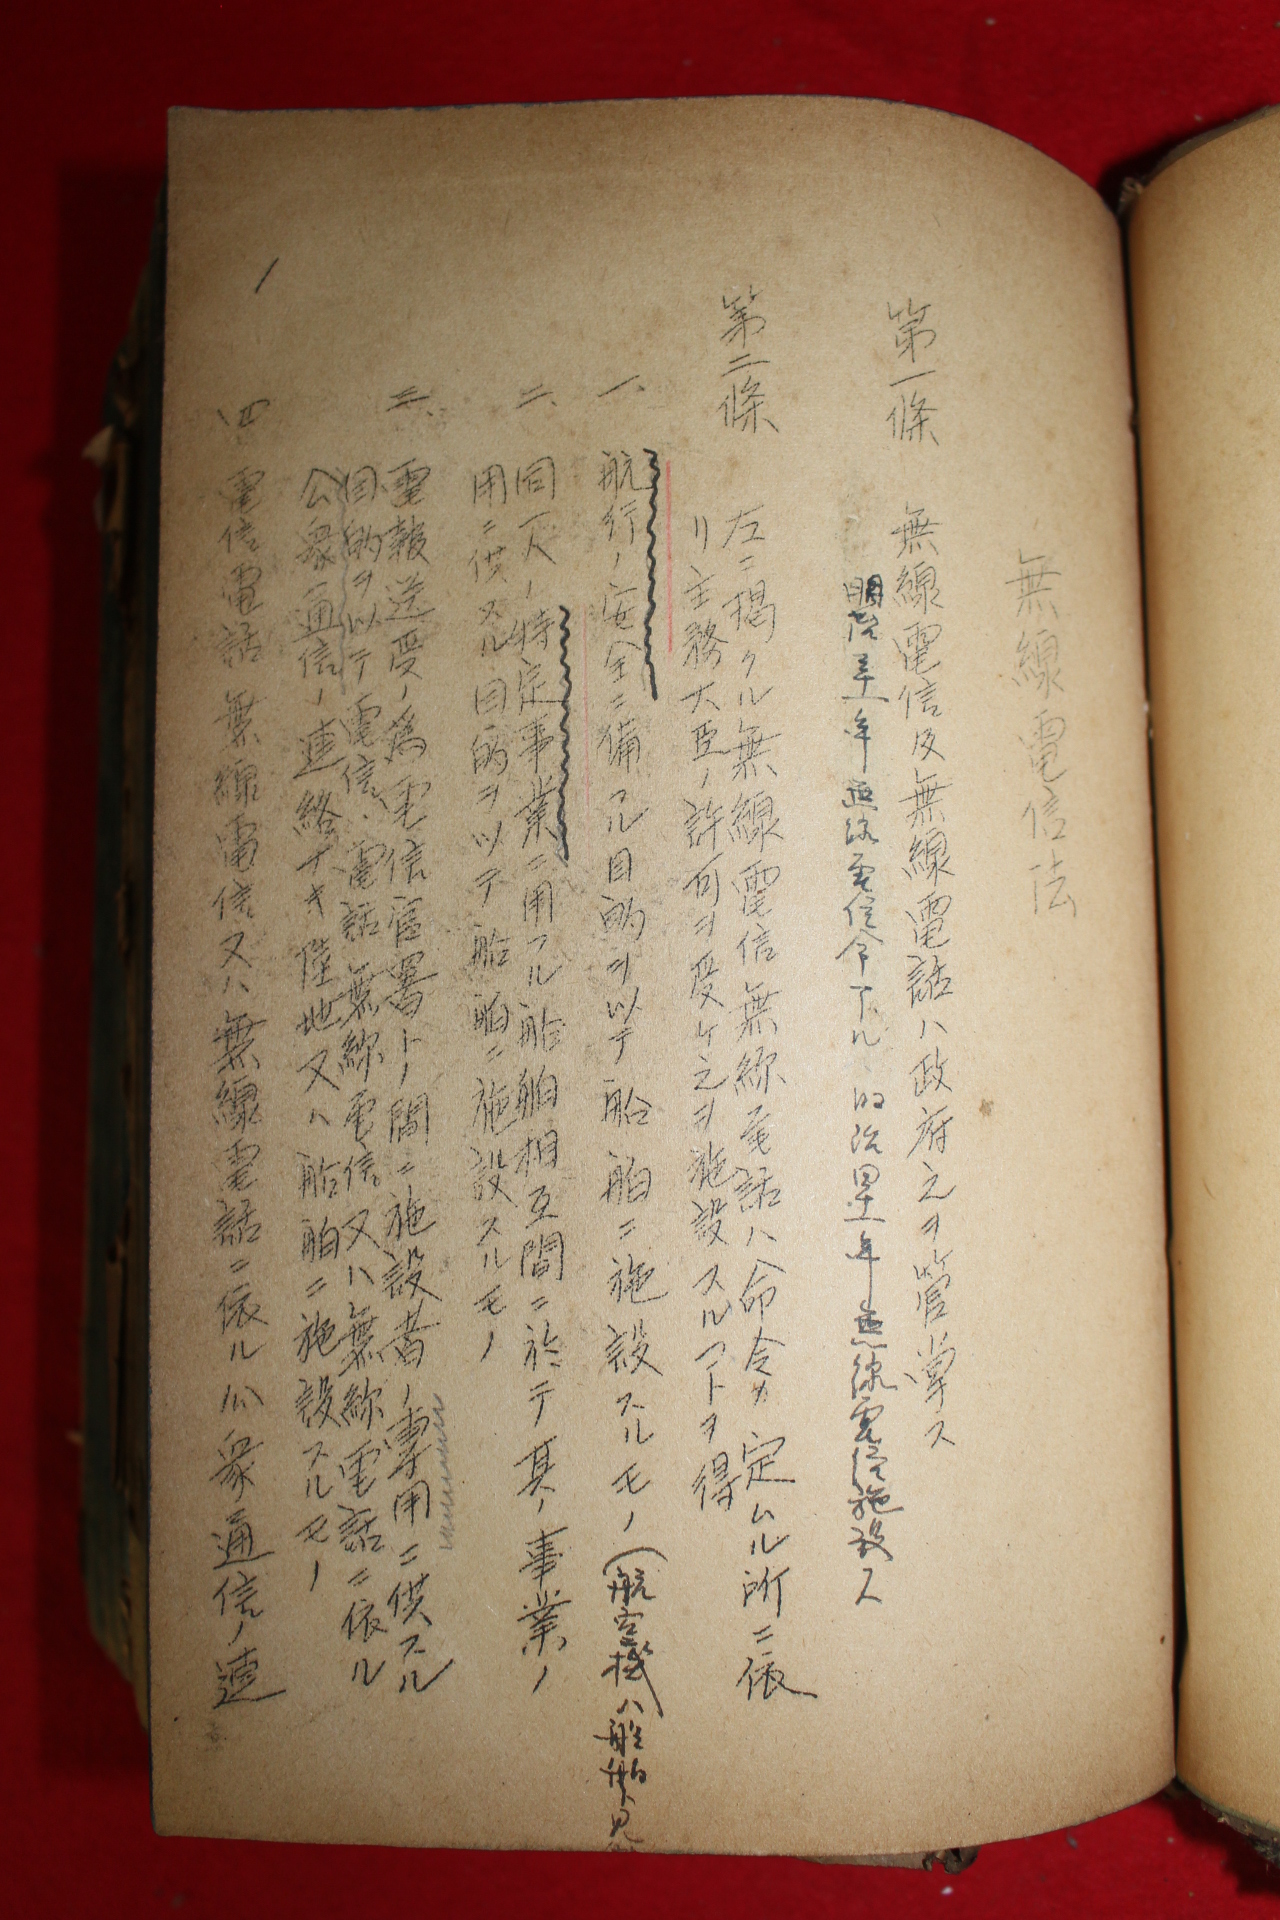 無線電信法
第一條 無線電信及無線電話ハ政府之ヲ管掌ス
明治三十一年無線電信令下ル 明治四十一年無線電信施設ス
第二條 左ニ揭クル無線電信無線電話ハ命令カ定ムル所ニ依
リ主務大臣ノ許可ヲ受ケ之ヲ施設スルコトヲ得
一、航行ノ安全ニ備フル目的ヲ以テ船舶ニ施設スルモノ(航空機ハ船舶ト見
二、同一人ノ特定事業ニ用フル船舶相互間ニ於テ其ノ事業ノ
用ニ供スル目的ヲ以テ船舶ニ施設スルモノ
三、電報送受ノ為電信官署トノ間ニ施設者ノ專用ニ供スル
目的ヲ以テ電信、電話無線電信又ハ無線電話ニ依ル
公衆通信ノ連絡ナキ陸地又ハ船舶ニ施設スルモノ
四 電信電話無線電信又ハ無線電話ニ依ル公衆通信ノ連